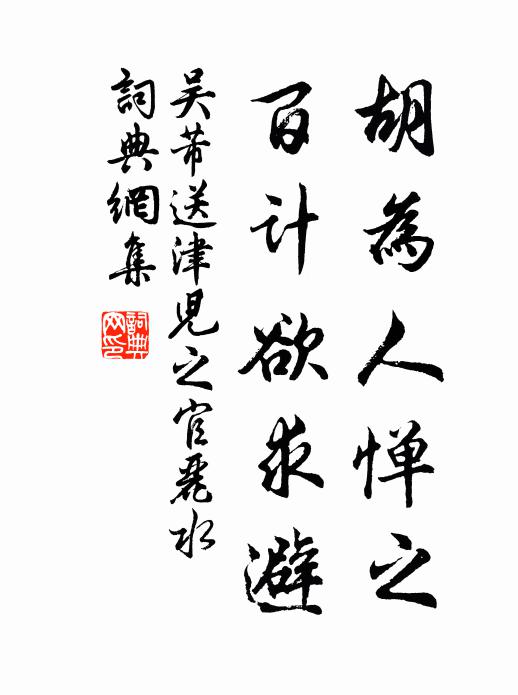 胡為人憚之
百計欲求避
吳芾送津兒之官麗水
詞典網集
詞典網印